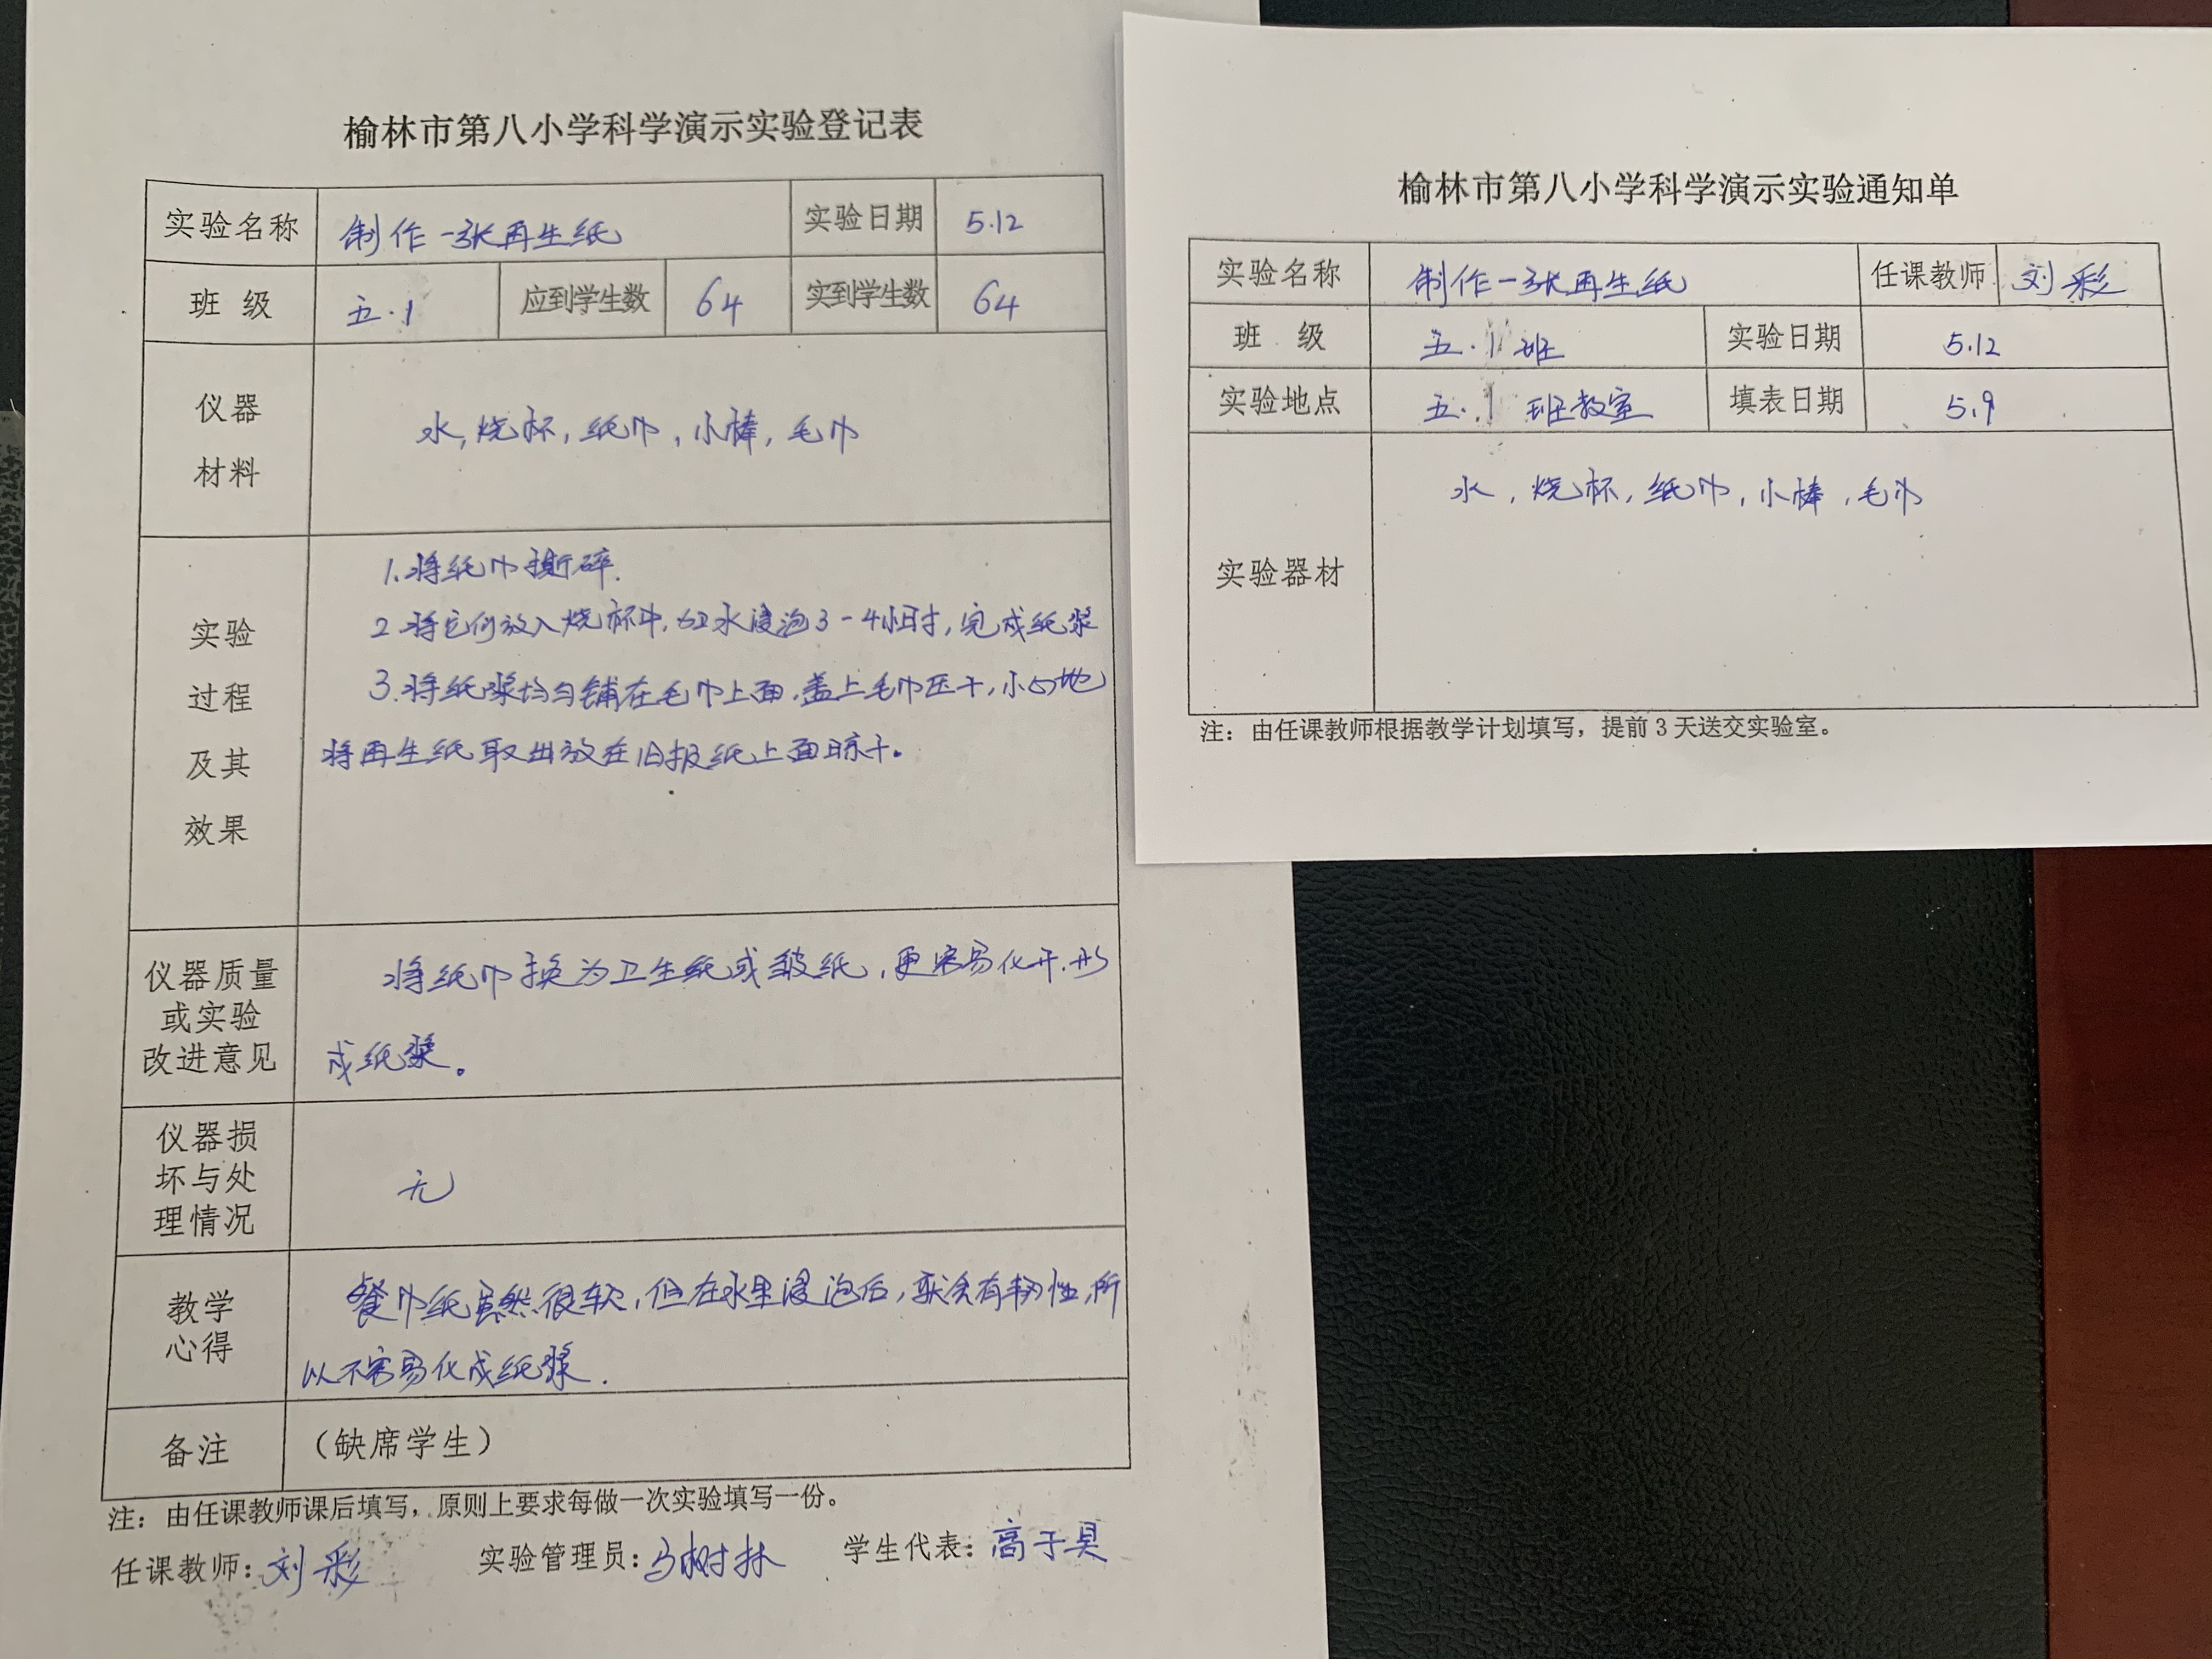 榆林市第八小学科学演示实验登记表
实验名称 制作一张再生纸 实验日期 5.12
班 级 五.1 应到学生数 64 实到学生数 64
仪器
材料
水,烧杯,纸巾,小棒,毛巾
实验
过程
及其
效果
1.将纸巾撕碎.
2.将它们放入烧杯中,加水浸泡3-4小时,完成纸浆
3.将纸浆均匀铺在毛巾上面,盖上毛巾压干,小心地
将再生纸取出放在旧报纸上面晾干。
仪器质量
或实验
改进意见
将纸巾换为卫生纸或皱纸,更容易化开.形
成纸浆。
仪器损
坏与处
理情况
无
教学
心得
餐巾纸虽然很软,但在水里浸泡后,就会有韧性,所
以不容易化成纸浆.
备注 (缺席学生)
注:由任课教师课后填写,原则上要求每做一次实验填写一份。
任课教师:刘彩 实验管理员:马树林 学生代表:高于具
榆林市第八小学科学演示实验通知单
实验名称 制作一张再生纸 任课教师 刘彩
班 级 五.1班 实验日期 5.12
实验地点 五.1班教室 填表日期 5.9
实验器材 水,烧杯,纸巾,小棒,毛巾
注:由任课教师根据教学计划填写,提前3天送交实验室。